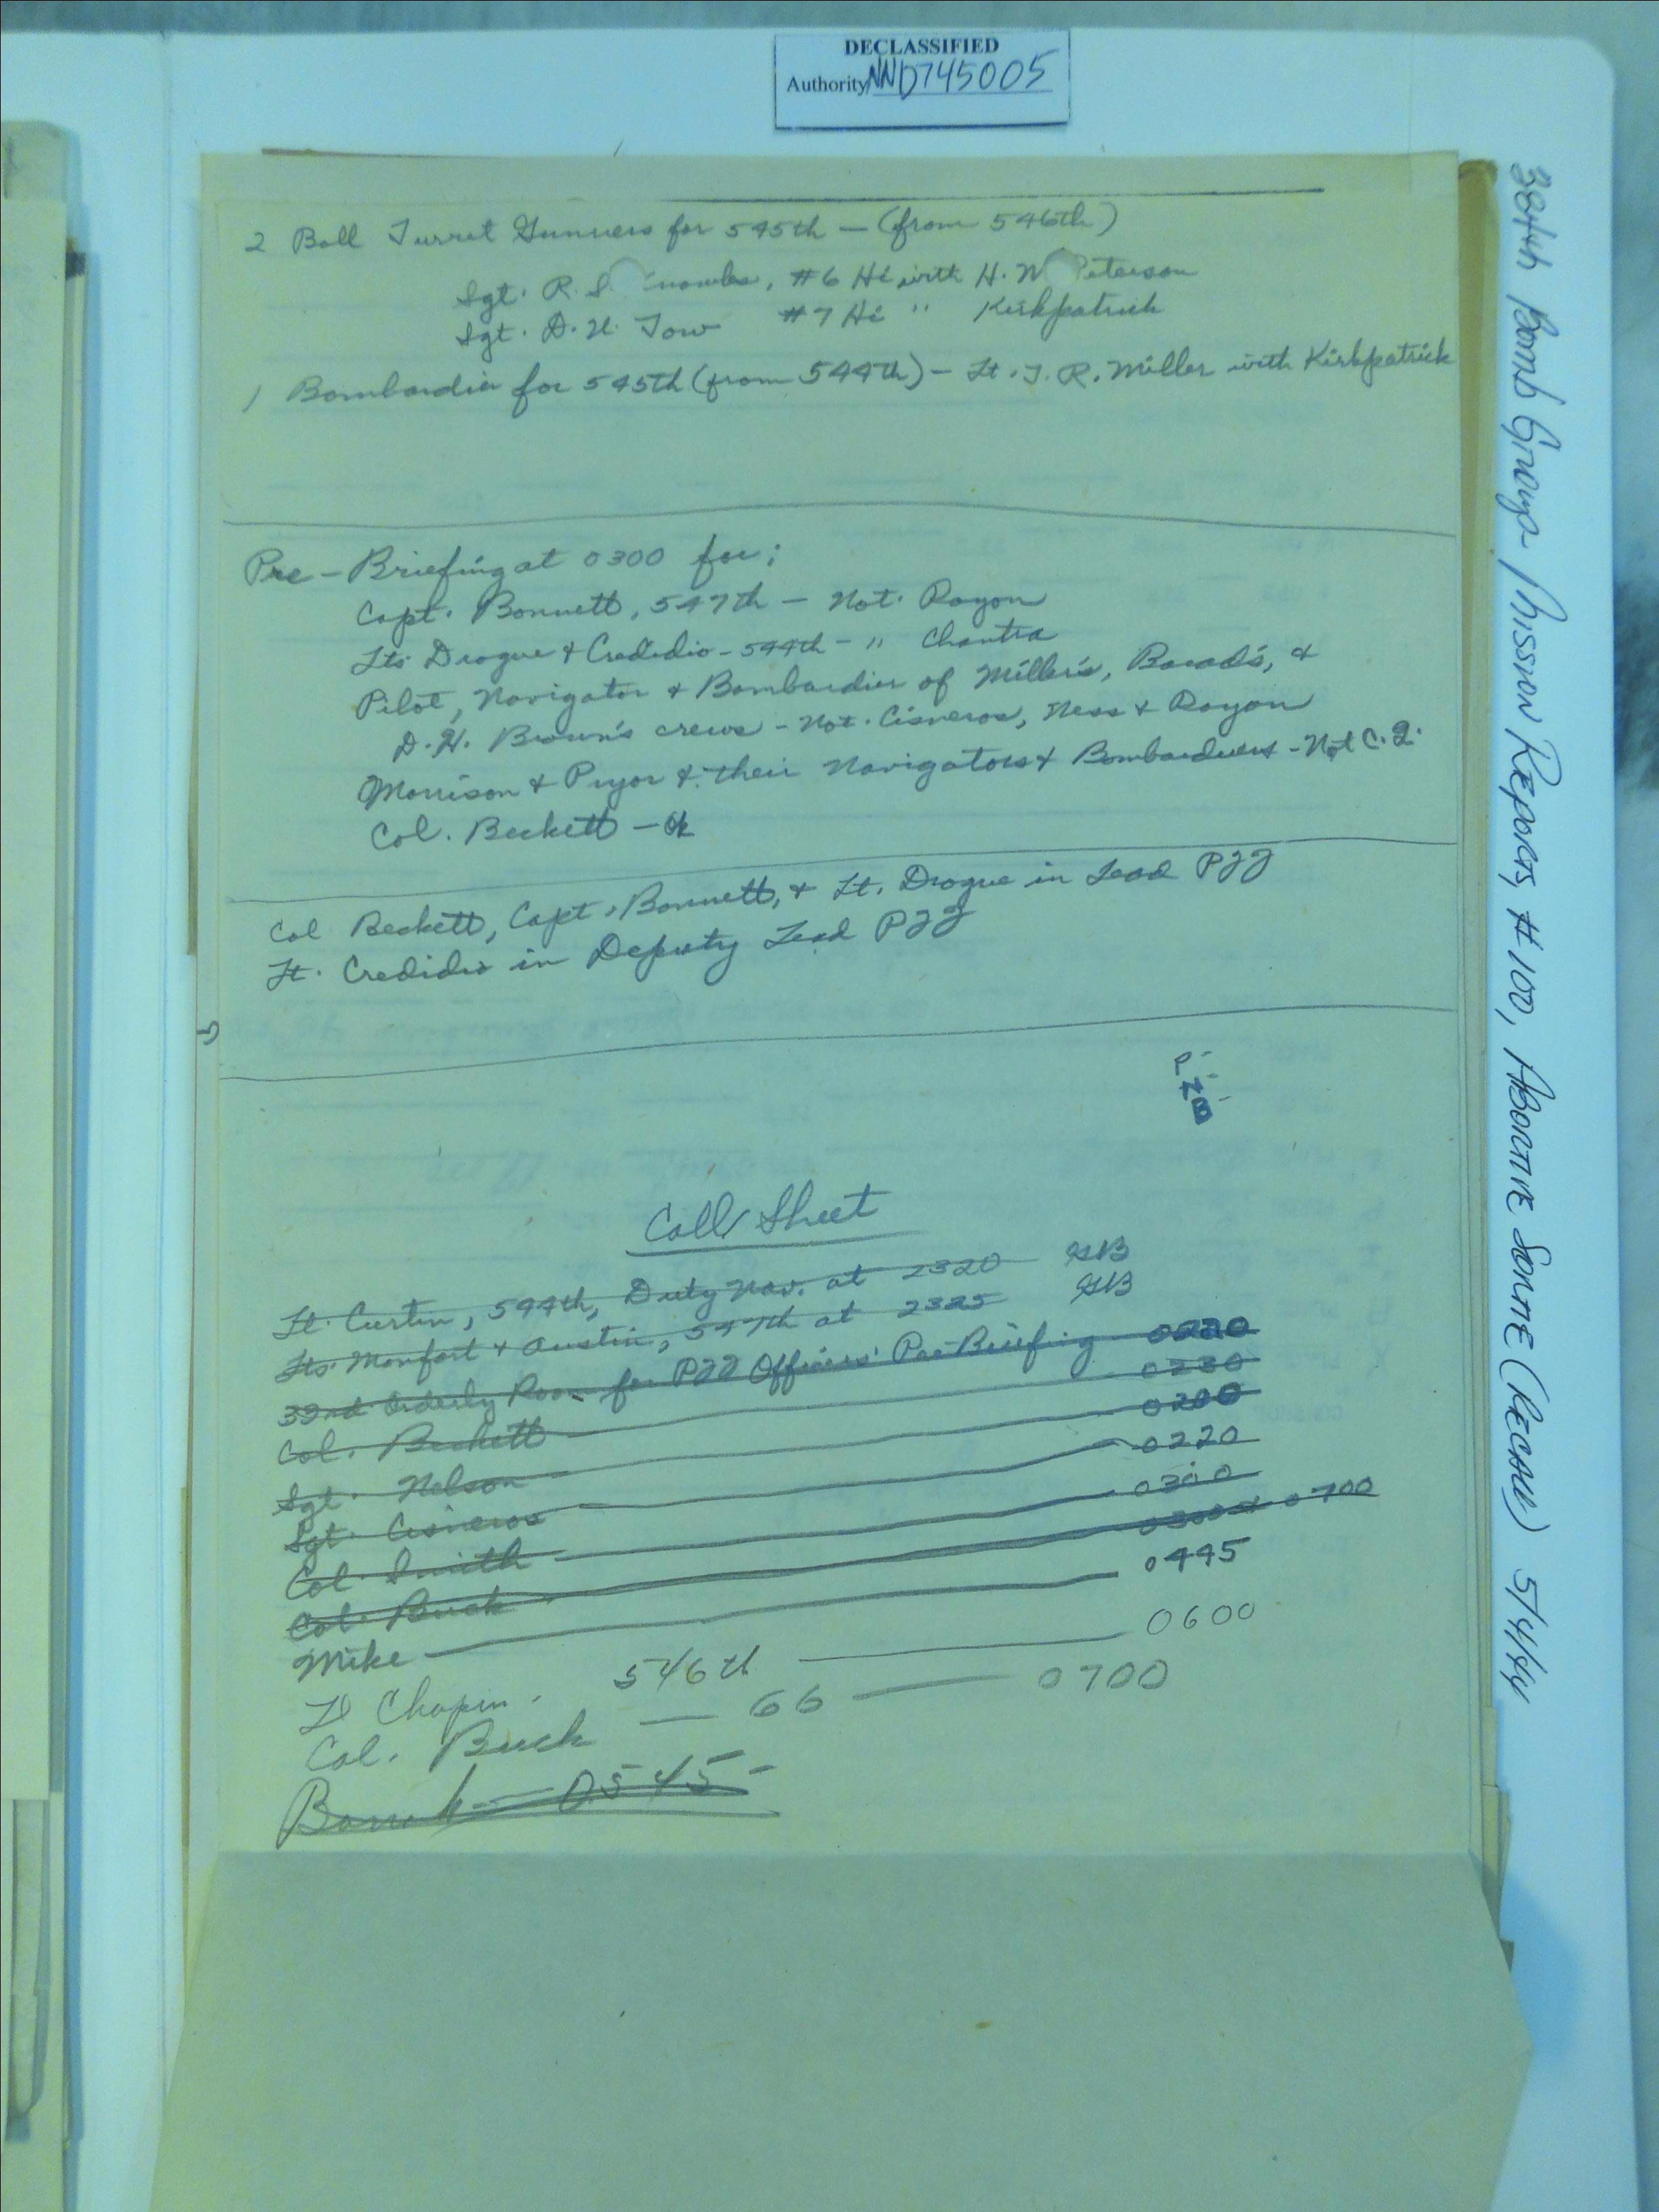 DECLASSIFIED
Authority NND745005
2 Ball Turret Gunners for 545th — (from 546th)
Sgt. R. S. #6 Hi with H. W. Peterson
Sgt. D. H. Tow #7 Hi " Kirkpatrick
1 Bombardier for 545th (from 544th) - Lt. J. R. Miller with Kirkpatrick
Pre-Briefing at 0300 for;
Capt. Bonnett, 547th - Not. Rayon
Lts Drogue & Credidio - 544th - " Chantra
Pilot, Navigator & Bombardier of Miller's, &
D. H. Brown's crews - Not. Cisneros, Ness & Rayon
Morrison & Pryor & their Navigators & Bombardiers - Not C.Q.
Col. Beckett - Ok
Col Beckett, Capt. Bonnett, & Lt. Drogue in Lead PFF
Lt. Credidio in Deputy Lead PFF
P -
N -
B -
Call Sheet
Lt. Curtin, 544th, Duty Nav. at 2320 GB
Lts. Monfort & Austin, 547th at 2325 GB
32nd Orderly Room for PFF Officers' Pre-Briefing 0220
Col. Beckett 0230
Sgt. Nelson 0200
Sgt. Cisneros 0220
Col. Smith 0300
Col. Buck 0300 & 0700
Mike 0445
Lt Chapin. 546th 0600
Col. Buck — 66 — 0700
0545
384th Bomb Group Mission Reports, #100, Abortive Sortie (Recall) 5/4/44